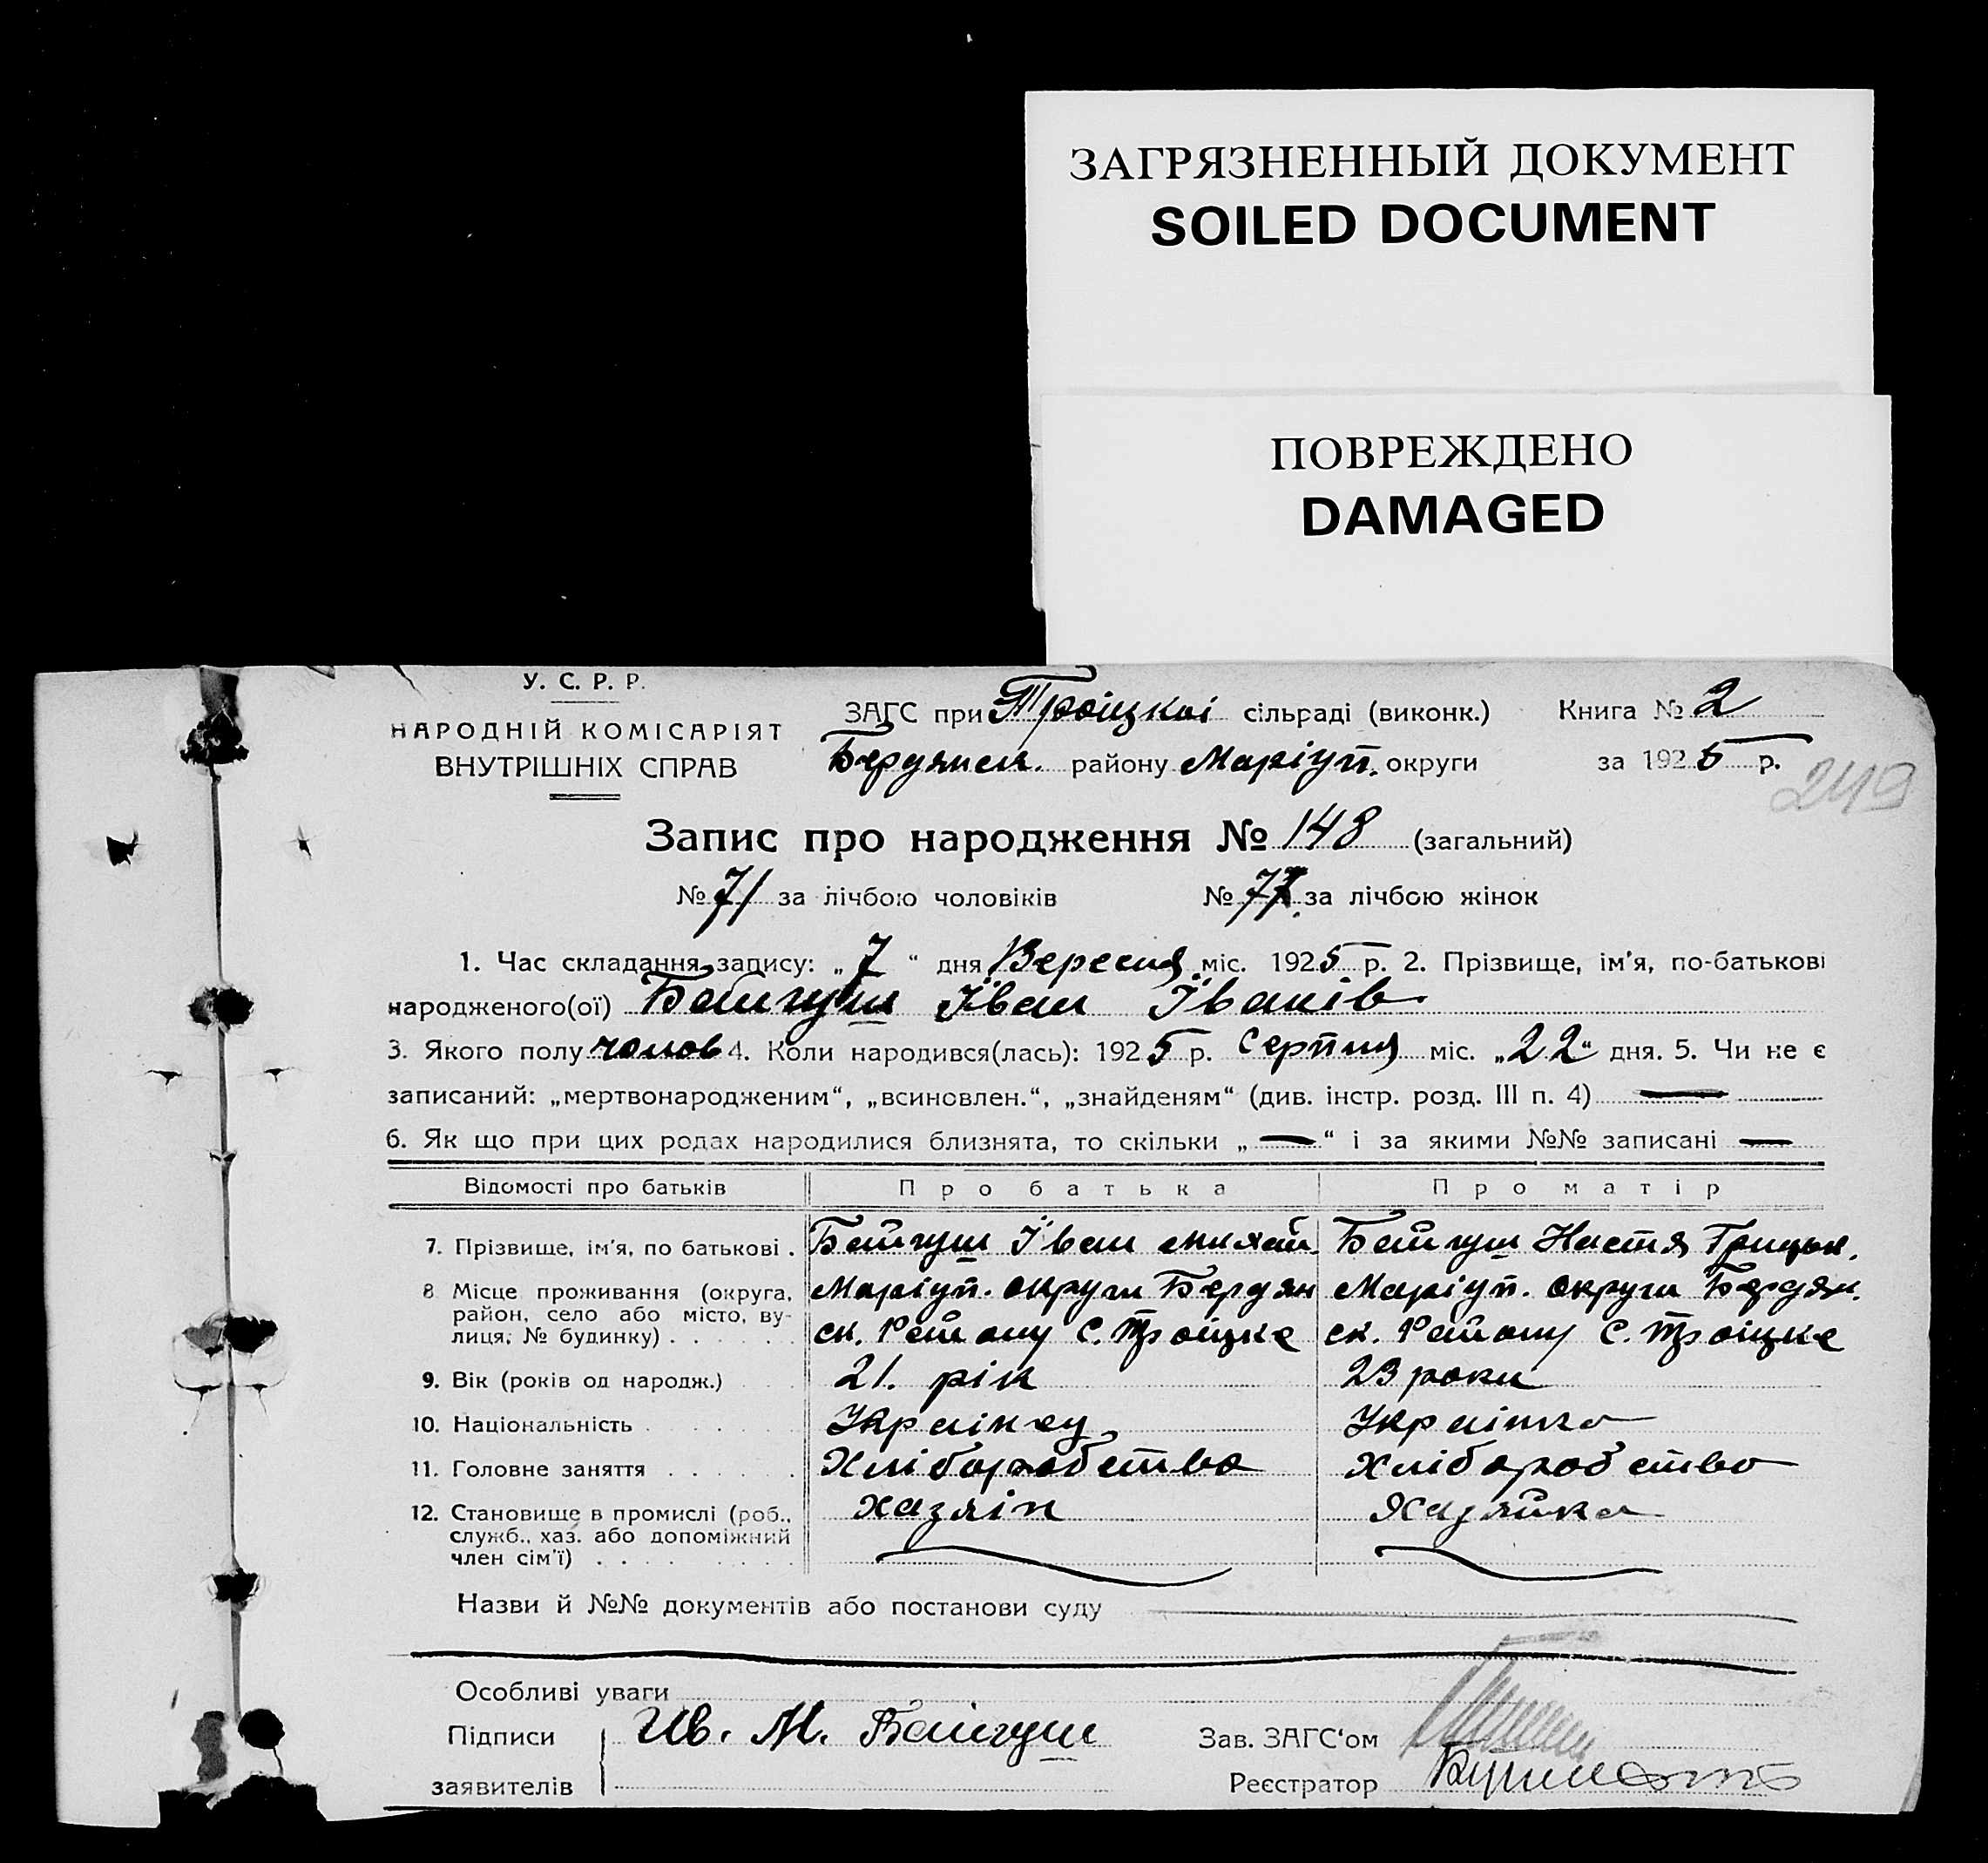 ЗАГРЯЗНЕННЫЙ ДОКУМЕНТ
SOILED DOCUMENT
ПОВРЕЖДЕНО
DAMAGED
У. С. Р. Р.
НАРОДНІЙ КОМІСАРІЯТ
ВНУТРІШНІХ СПРАВ
ЗАГС при Троїцкої сільраді (виконк.) Книга № 2
Бердянськ. району Маріуп. округи за 1925 р.
249
Запис про народження № 148 (загальний)
№ 71 за лічбою чоловіків № 77 за лічбою жінок
1. Час складання запису: „7“ дня Вересня міс. 1925 р. 2. Прізвище, ім'я, по-батькові
народженого(ої) Байгуш Іван Іванів
3. Якого полу чолов 4. Коли народився(лась): 1925 р. Серпня міс. „22“ дня. 5. Чи не є
записаний: „мертвонародженим“, „всиновлен.“, „знайденям“ (див. інстр. розд. III п. 4) —
6. Як що при цих родах народилися близнята, то скільки „—“ і за якими №№ записані —
Відомості про батьків Про батька Про матір
7. Прізвище, ім'я, по батькові . Байгуш Іван михай. Байгуш Настя Грицьк.
8 Місце проживання (округа, район, село або місто, вулиця, № будинку) . . . .
Маріуп. округи Бердян Маріуп. округи Бердян.
ск. Району С. Троїцке ск. Району С. Троїцке
9. Вік (років од народж.) 21. рік 23 роки
10. Національність . . . . . . . Українец Українка
11. Головне заняття . . . . . . Хліборобство хліборобство
12. Становище в промислі (роб., служб., хаз. або допоміжний член сім'ї) . . . . . . . . .
хазяін Хазяйка
Назви й №№ документів або постанови суду
Особливі уваги
Підписи Ив. М. Байгуш Зав. ЗАГС'ом
заявителів Реєстратор